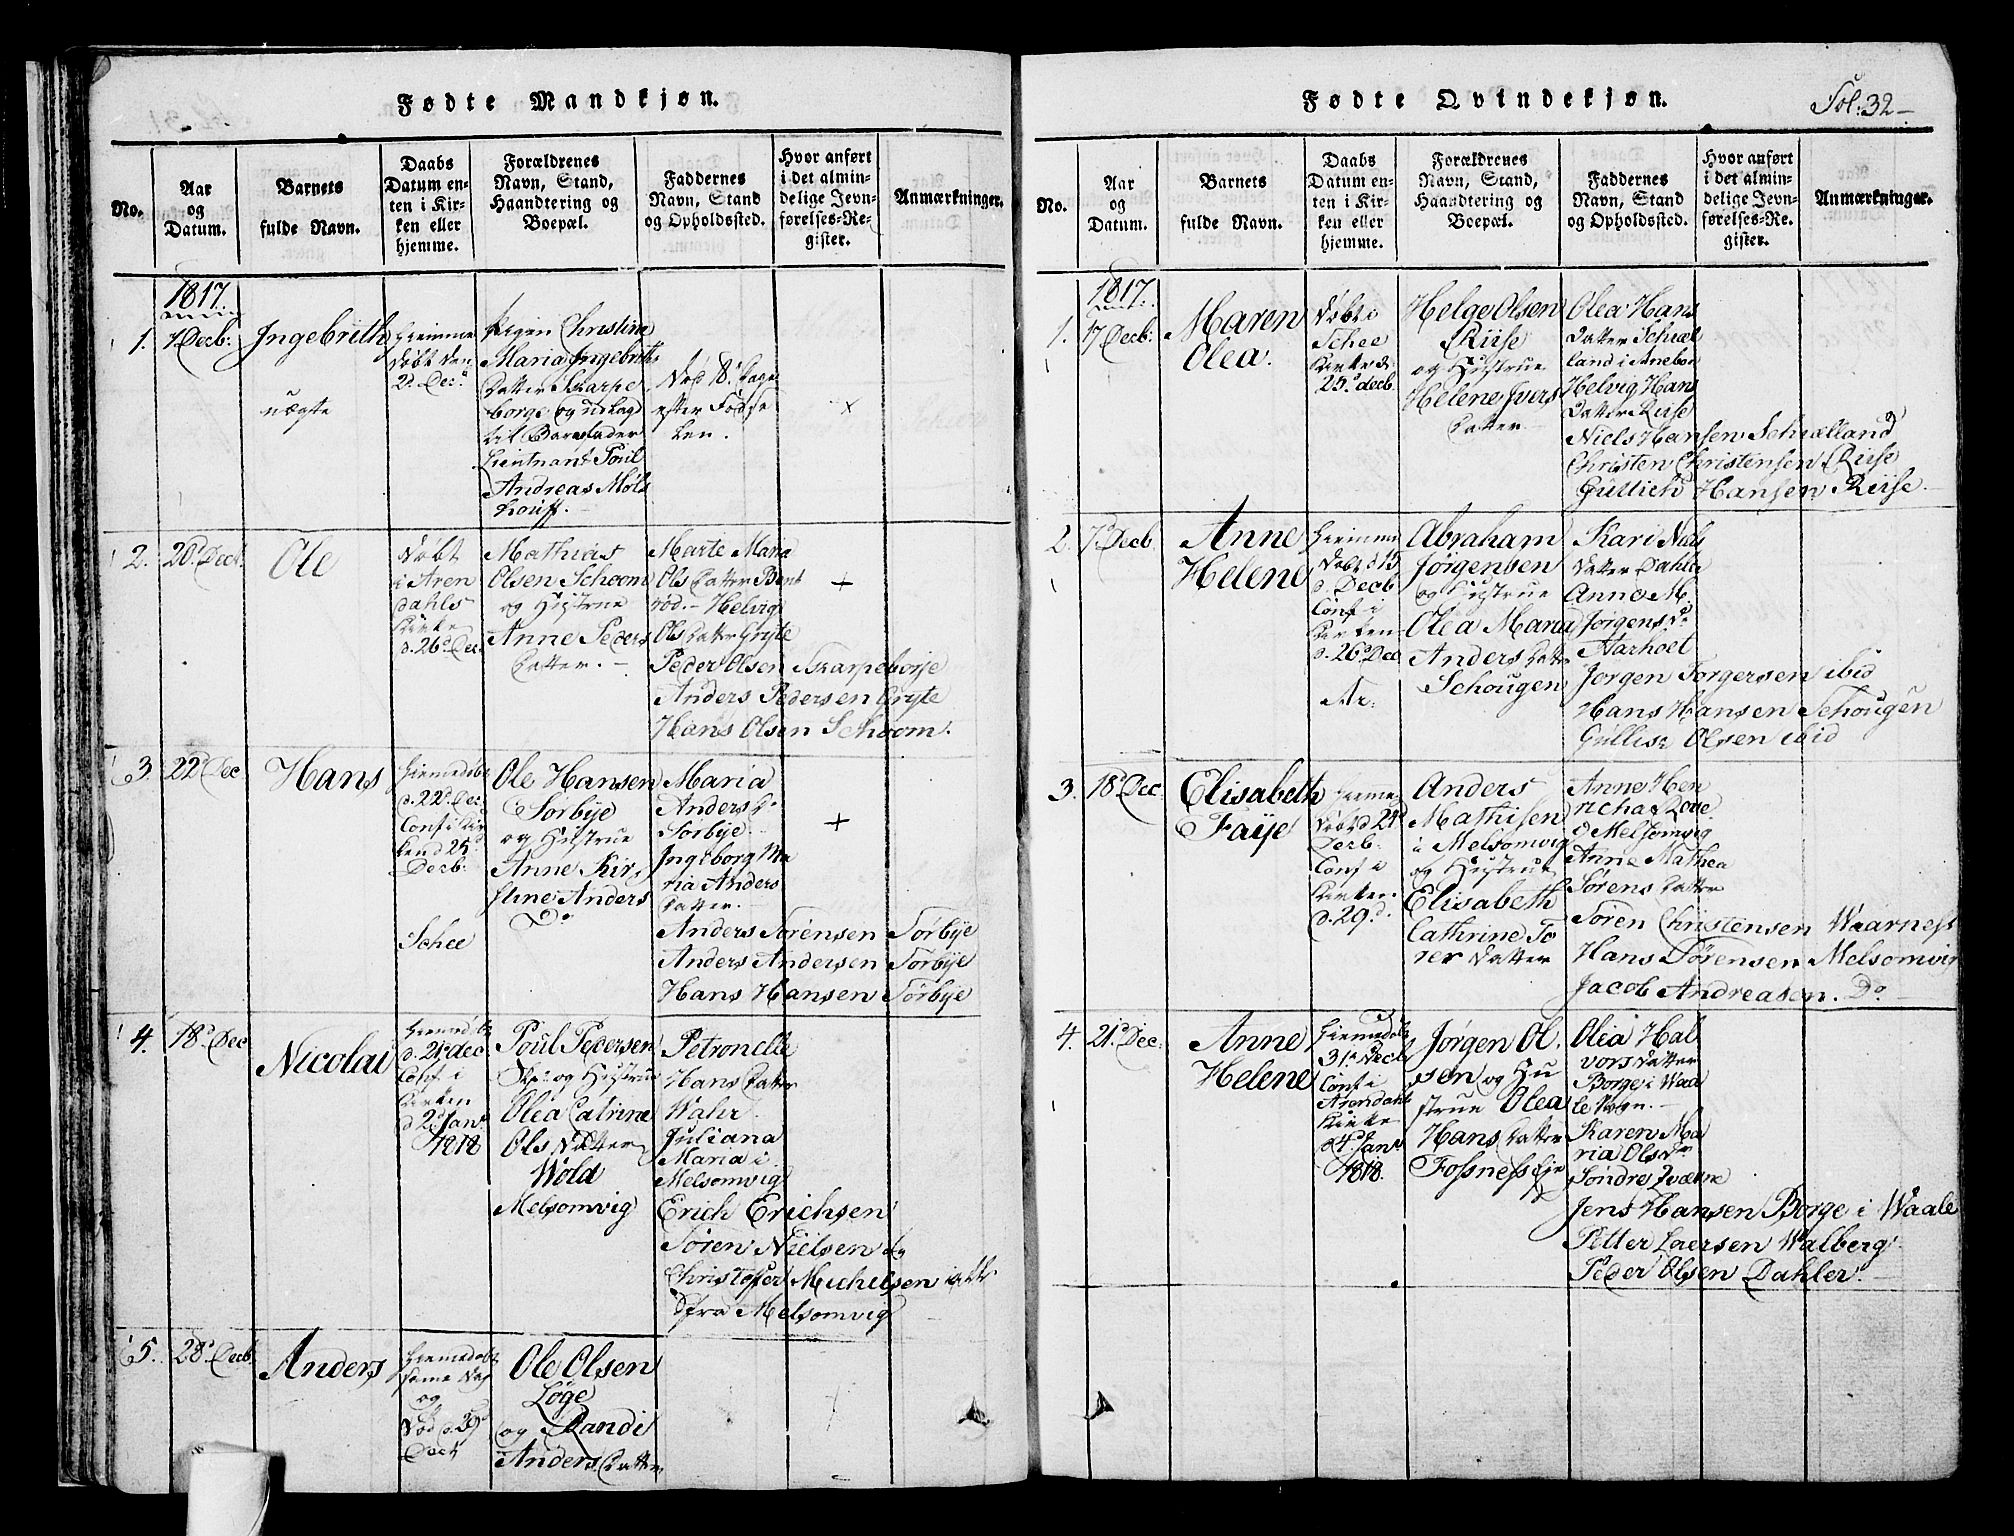 Fødte Mandkjøn.
No.
Aar
og
Datum.
Barnets
fulde Navn.
Daabs
Datum en-
ten i Kir-
ken eller
hjemme.
Forældrenes
Navn, Stand,
Haandtering og
Boepæl.
Faddernes
Navn, Stand
og Opholdssted.
Hvor anført
i det almin-
delige Jevn-
førelses-Re-
gister.
Anmærkninger.
1817.
1.
7 Decb:
Ingebrith
uægte
hiemme
døbt den
2d. Dec.
Pigen Christine
Maria Ingebrits
Datter Skarpe
borge og udlagd
til Barnefader
Lieutnant Poul
Andreas Møls
Død 18 Dage
efter Fødse
len.
x
2.
20d Decb.
Ole
Døbt
i Aren
dahls
Kirke
d. 26 Dec
Mathias
Olsen Schoom
og Hustrue
Anne Peders
Datter.
Marte Maria
Ols Datter Bent
rød. - Helvig
Ols Datter Gryte
Peder Olsen Skarpeborje
Anders Pedersen Gryte
Hans Olsen Schoom.
+
3.
22d Dec
Hans
hiemedøbt
d. 22d Dec
Conf i Kir
ken d 25
Decb:
Schee
Ole Hansen
Sørbye
og Hustrue
Anne Kir
stine Anders
Do
Maria
Anders D.
Sørbye
Ingeborg Ma
ria Anders
Datter.
Anders Sørensen Sørbye
Anders Andersen Sørbye
Hans Hansen Sørbye
+
4.
18d Dec
Nicolai
hiemedøbt
d. 21 dec
Conf i
Kirken
d 2d Janr
1818
Poul Pedersen
og Hustrue
Olea Catrine
Ols Datter
Wold
Melsomvig
Petronelle
Hans Datter
Wahr.
Juliana
Maria i
Melsomvig
Erich Erichsen
Søren Nielsen og
Christoffer Michelsen
fra Melsomvig
5.
28d Decb.
Anders
hiemedøbt
samme Dag
og
Død d. 29d
Decb
Ole Olsen
Løge
og Randi
Anders Datter
Fødte Qvindekjøn.
Fol: 32
No.
Aar
og
Datum.
Barnets
fulde Navn.
Daabs
Datum en-
ten i Kir-
ken eller
hjemme.
Forældrenes
Navn, Stand,
Haandtering og
Boepæl.
Faddernes
Navn, Stand
og Opholdssted.
Hvor anført
i det almin-
delige Jevn-
førelses-Re-
gister.
Anmærkninger.
1817.
1.
17 Decb:
Maren
Olea.
Døbt i
Schee
Kirke d.
25d decb
Helge Olsen
Riise
og Hustrue
Helene Ivers
Datter
Olea Hans
Datter Schiæl
land i Annebo
Helvig Hans
Datter Riise
Niels Hansen Schiælland
Christen Christensen Riise
Gullich Hansen Riise.
2.
7d Decb
Anne
Helene
hiemme
Døbt d 15
d. Decb
Conf i
Kirken
d. 26 Dec
Ar.
Abraham
Jørgensen
og Hustrue
Olea Maria
Anders Datter
Schougen
Kari Niels
Datter Dahler
Anne M.
Jørgens Dr
Aarholt
Jørgen Torgersen ibid
Hans Hansen Schougen
Gullik Olsen ibid
3.
18d Dec
Elisabeth
Faye
hieme
Døbt d 24
Decb.
Conf i
Kirken
d. 29d.
Anders
Mathisen
i Melsomvig
og Hustrue
Elisabeth
Cathrine To
rer Datter
Anne Hen
richa Rove
Melsomvig
Anne Mathea
Sørens Datter
Søren Christensen Waarness
Hans Sørensen Melsomvig
Jacob Andreasen. Do
4.
21d Dec:
Anne
Helene
hiemedøbt
31d Decb
Conf i
Arendahls
Kirke
d 4d Janr
1818.
Jørgen Ol.
sen og Hu
strue Olea
Hans Datter
Fossness Eie
Olea Hal
vors Datter
Borge i Waa
le Sogn.
Karen Ma
ria Ols Dr
Søndre
Jens Hansen Borge i Waale
Petter Laersen Walberg.
Peder Olsen Dahler.